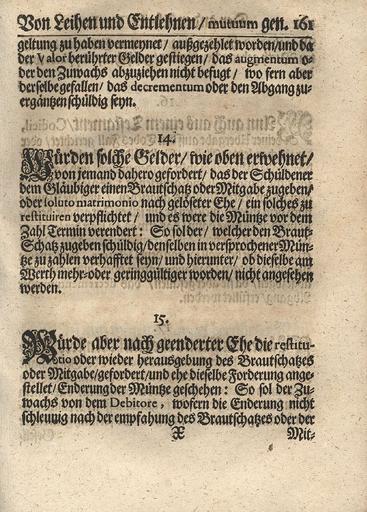 Von Leihen und Entlehnen / mutuum gen. 161
geltung zu haben vermeynet / außgezehlet worden / und da
der Valor berührter Gelder gestiegen / das augmentum o-
der den Zuwachs abzuziehen nicht befugt / wo fern aber
derselbe gefallen / das decrementum oder den Abgang zu-
ergäntzen schüldig seyn.
14.
Würden solche Gelder / wie oben erwehnet /
von jemand dahero gefordert / das der Schüldener
dem Gläubiger einen Brautschatz oder Mitgabe zugeben /
oder soluto matrimonio nach gelöseter Ehe / ein solches zu
restituiren verpflichtet / und es were die Müntze vor dem
Zahl Termin verendert : So sol der / welcher den Braut-
Schatz zugeben schüldig / denselben in versprochener Mün-
tze zu zahlen verhafftet seyn / und hierunter / ob dieselbe am
Werth mehr- oder geringgültiger worden / nicht angesehen
werden.
15.
Würde aber nach geenderter Ehe die restitu-
tio oder wieder herausgebung des Brautschatzes
oder Mitgabe / gefordert / und ehe dieselbe Forderung ange-
stellet / Enderung der Müntze geschehen : So sol der Zu-
wachs von dem Debitore, wofern die Enderung nicht
schleunig nach der empfahung des Brautschatzes oder der
X Mit-